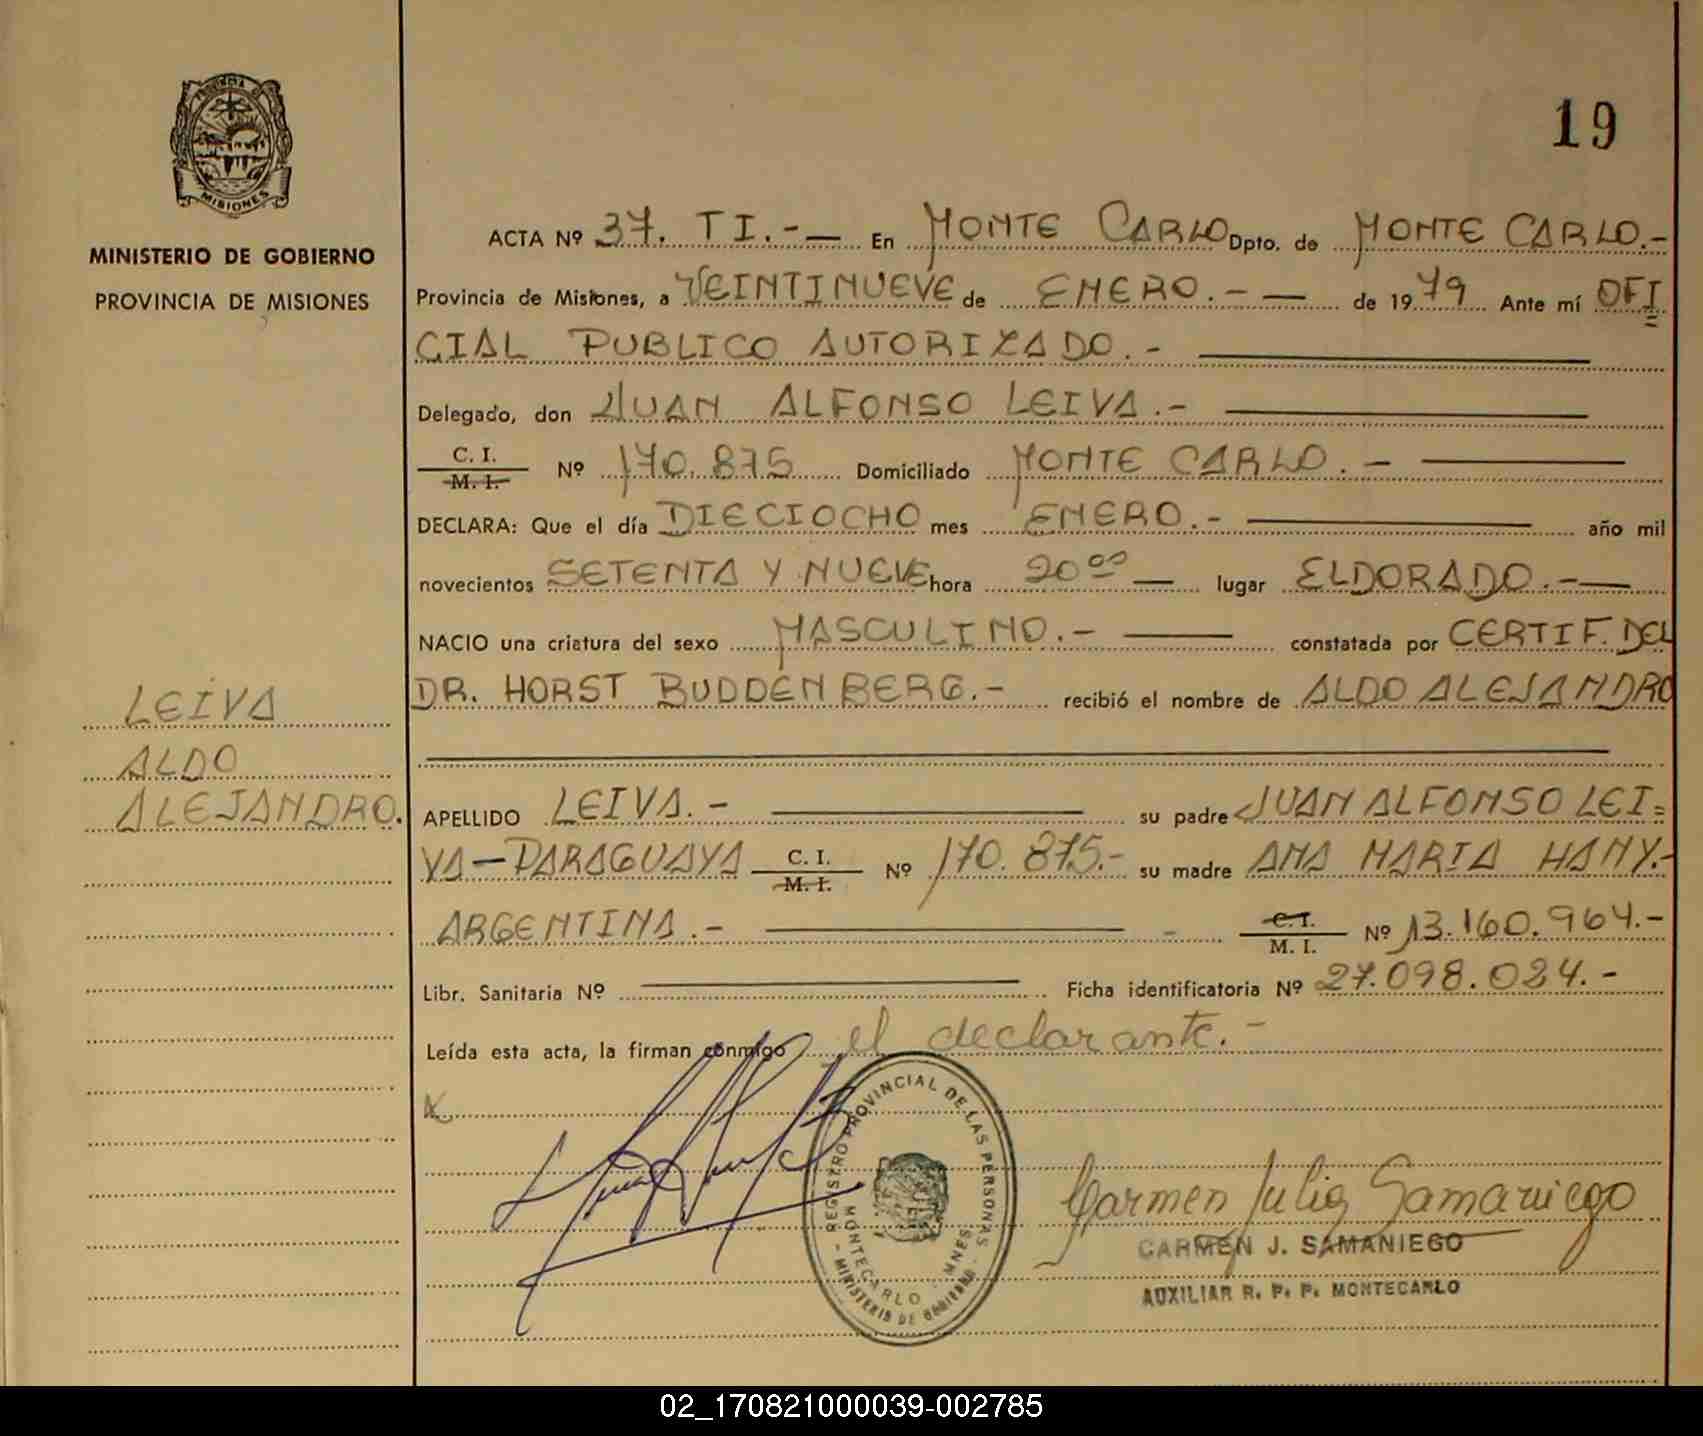 19
PROVINCIA DE
MISIONES
MINISTERIO DE GOBIERNO
PROVINCIA DE MISIONES
ACTA Nº 37. TI.-— En MONTE CARLO Dpto. de MONTE CARLO.-
Provincia de Misiones, a VEINTINUEVE de ENERO.-— de 1979 Ante mí OFI=
CIAL PUBLICO AUTORIZADO.-
Delegado, don JUAN ALFONSO LEIVA.-
C. I.
M. I. Nº 170.875 Domiciliado MONTE CARLO.-
DECLARA: Que el día DIECIOCHO mes ENERO.- año mil
novecientos SETENTA Y NUEVE hora 20⁰⁰— lugar ELDORADO.-—
NACIO una criatura del sexo MASCULINO.- constatada por CERTIF. DEL
DR. HORST BUDDENBERG.- recibió el nombre de ALDO ALEJANDRO
LEIVA
ALDO
ALEJANDRO.
APELLIDO LEIVA.- su padre JUAN ALFONSO LEI=
VA—PARAGUAYA C. I.
M. I. Nº 170.875.- su madre ANA MARIA HANY.-
ARGENTINA.- C. I.
M. I. Nº 13.160.964.-
Libr. Sanitaria Nº — Ficha identificatoria Nº 27.098.024.-
Leída esta acta, la firman conmigo el declarante.-
REGISTRO PROVINCIAL DE LAS PERSONAS
MONTECARLO - MNES
- MINISTERIO DE GOBIERNO -
Carmen Julia Samaniego
CARMEN J. SAMANIEGO
AUXILIAR R. P. P. MONTECARLO
02_170821000039-002785